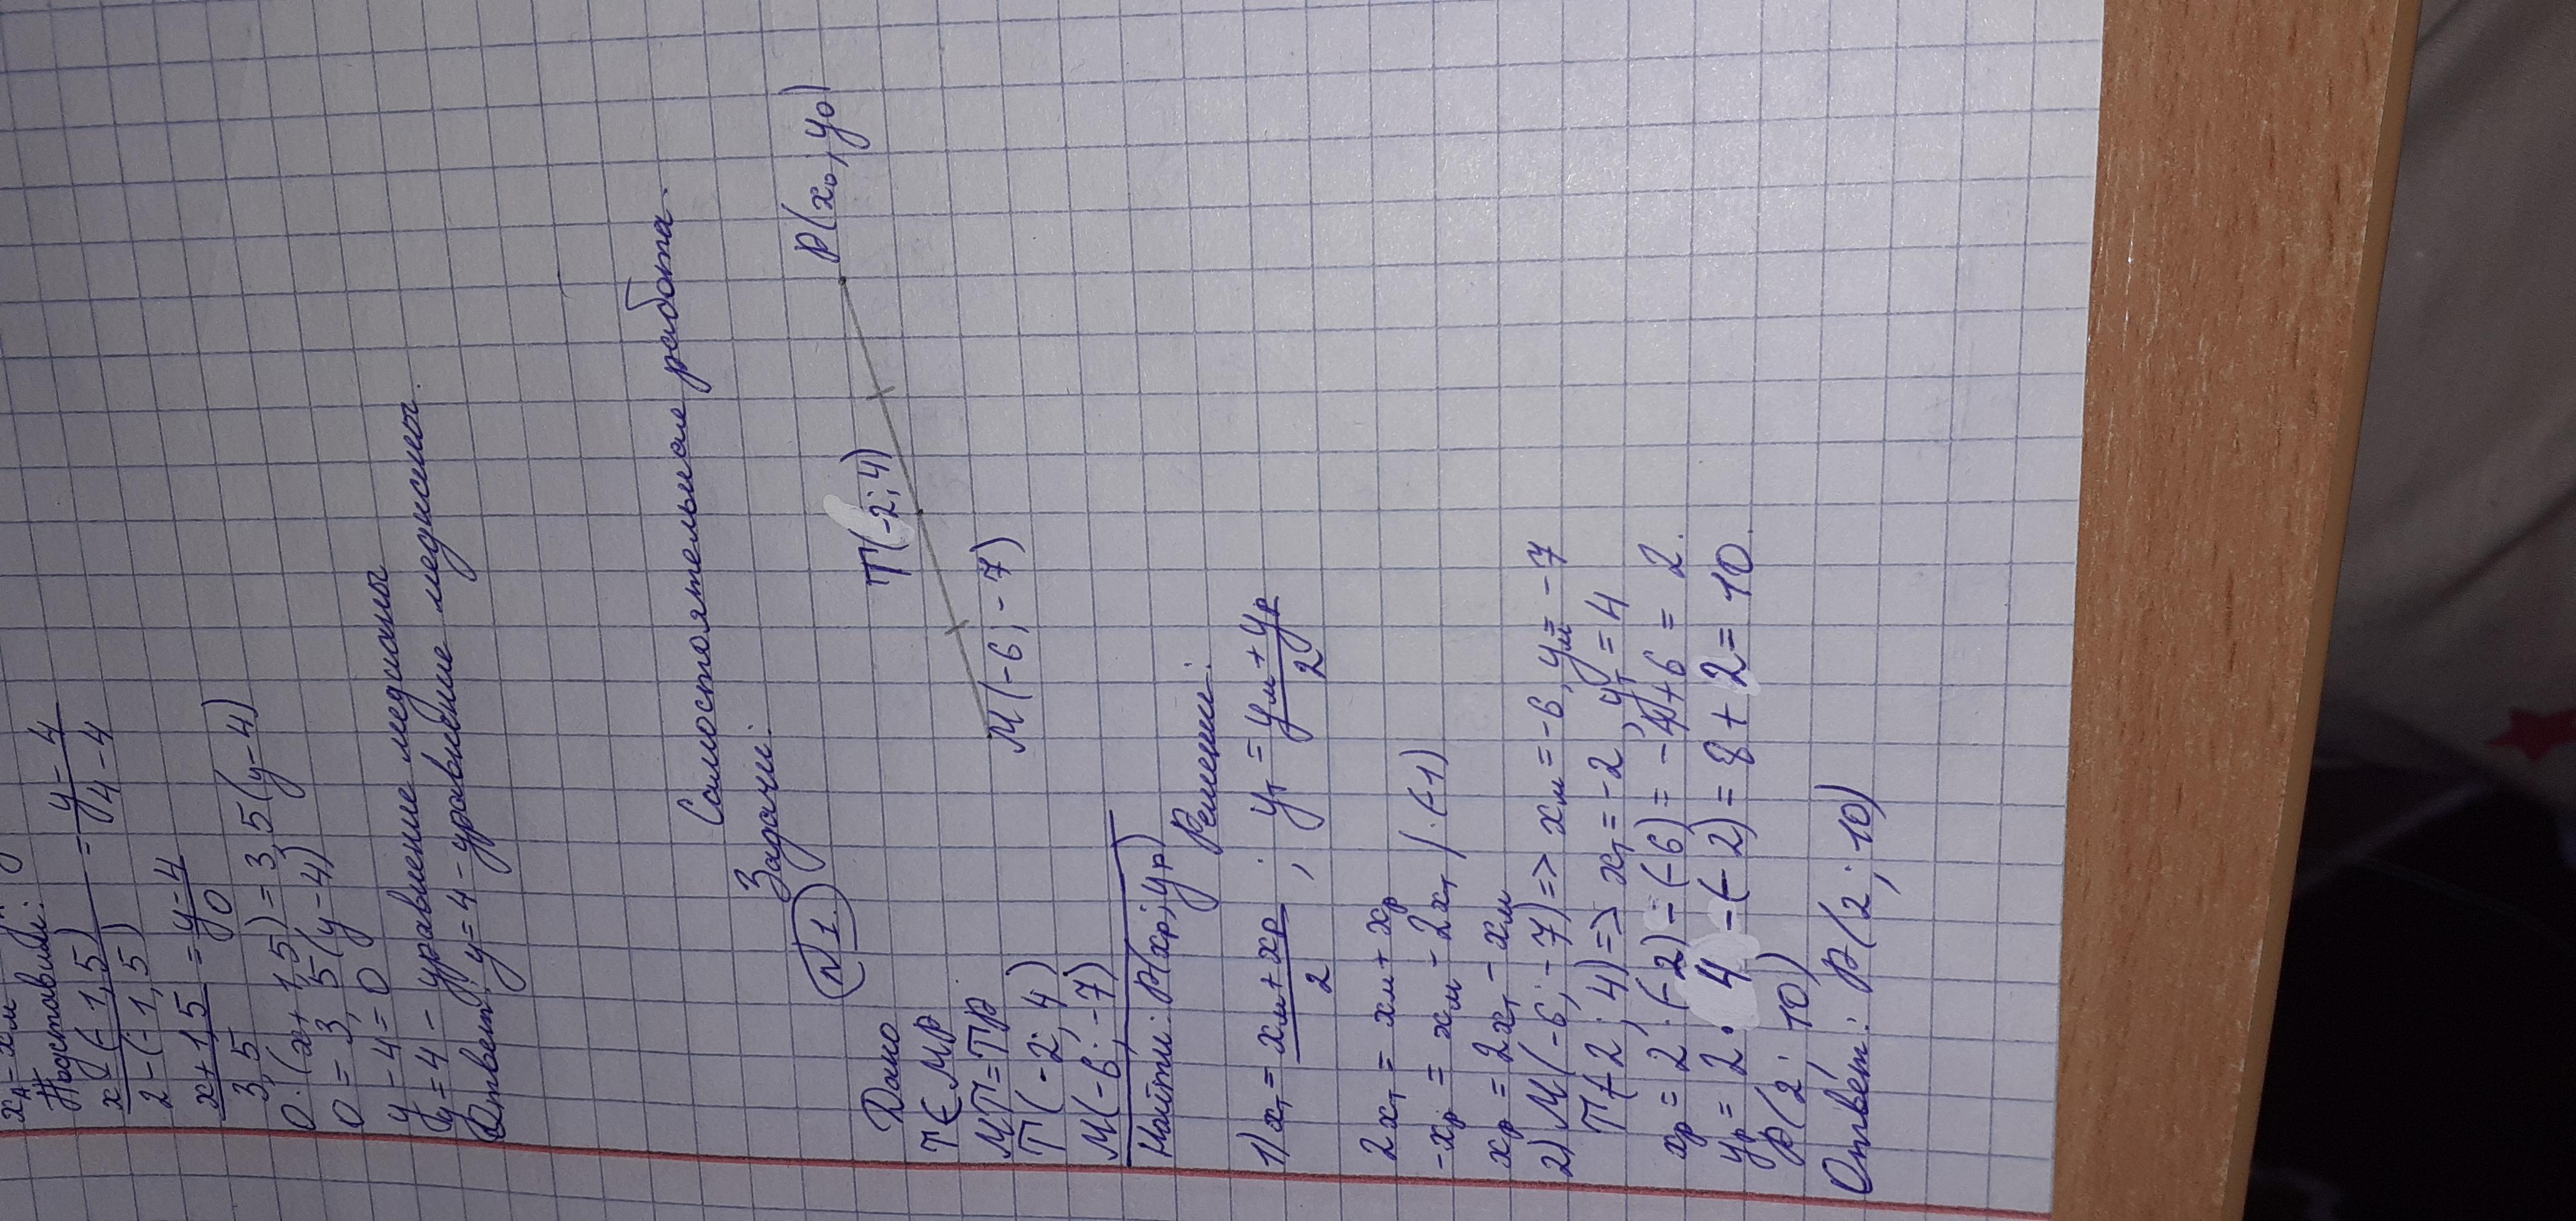 x_A - x_M
Подставим:
\frac{x-(-1,5)}{2-(-1,5)} = \frac{y-4}{4-4}
\frac{x+1,5}{3,5} = \frac{y-4}{0}
0·(x+1,5) = 3,5(y-4)
0 = 3,5(y-4)
y-4=0
y=4 - уравнение медианы
Ответ: y=4 - уравнение медианы.
Самостоятельная работа.
Задачи.
N 1.
Дано
T ∈ MP
MT=TP
T(-2; 4)
M(-6; -7)
Найти: P(x_p; y_p)
M(-6; -7)
T(-2; 4)
P(x_0; y_0)
Решение:
1) x_T = \frac{x_M + x_P}{2}; y_T = \frac{y_M + y_P}{2}
2x_T = x_M + x_P
-x_P = x_M - 2x_T /·(-1)
x_P = 2x_T - x_M
2) M(-6; -7) => x_M = -6, y_M = -7
T(-2; 4) => x_T = -2, y_T = 4
x_P = 2·(-2) - (-6) = -4+6 = 2.
y_P = 2·4 - (-2) = 8+2 = 10.
P(2; 10)
Ответ: P(2; 10)